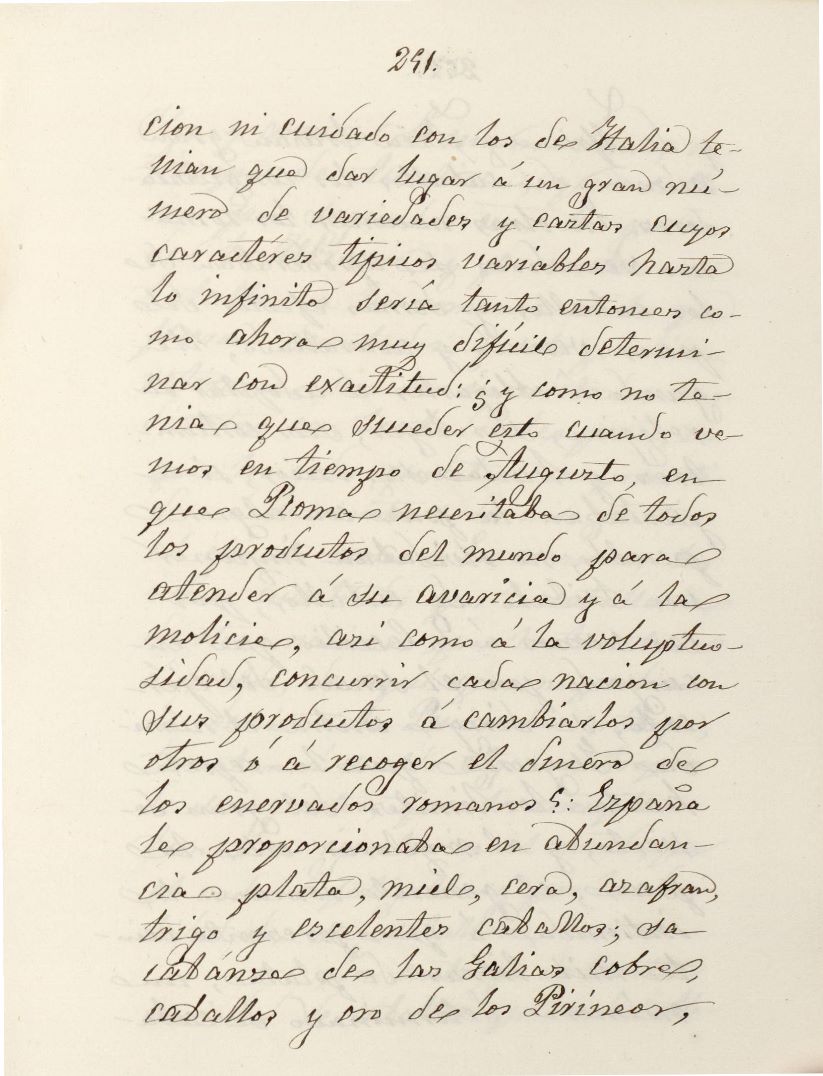 291.
cion ni cuidado con los de Italia te-
nian que dar lugar á un gran nú-
mero de variedades y castas cuyos
caractéres tipicos variables hasta
lo infinito sería tanto entonces co-
mo ahora muy difícil determi-
nar con exactitud: ¿y como no te-
nia que suceder esto cuando ve-
mos en tiempo de Augusto, en
que Roma necesitaba de todos
los productos del mundo para
atender á su avaricia y á la
molicie, asi como á la voluptuo-
sidad, concurrir cada nacion con
sus productos á cambiarlos por
otros ó á recoger el dinero de
los enervados romanos?: España
le proporcionaba en abundan-
cia plata, miel, cera, azafran,
trigo y escelentes caballos; sa
cabánse de las Galias cobre,
caballos y oro de los Pirineos,